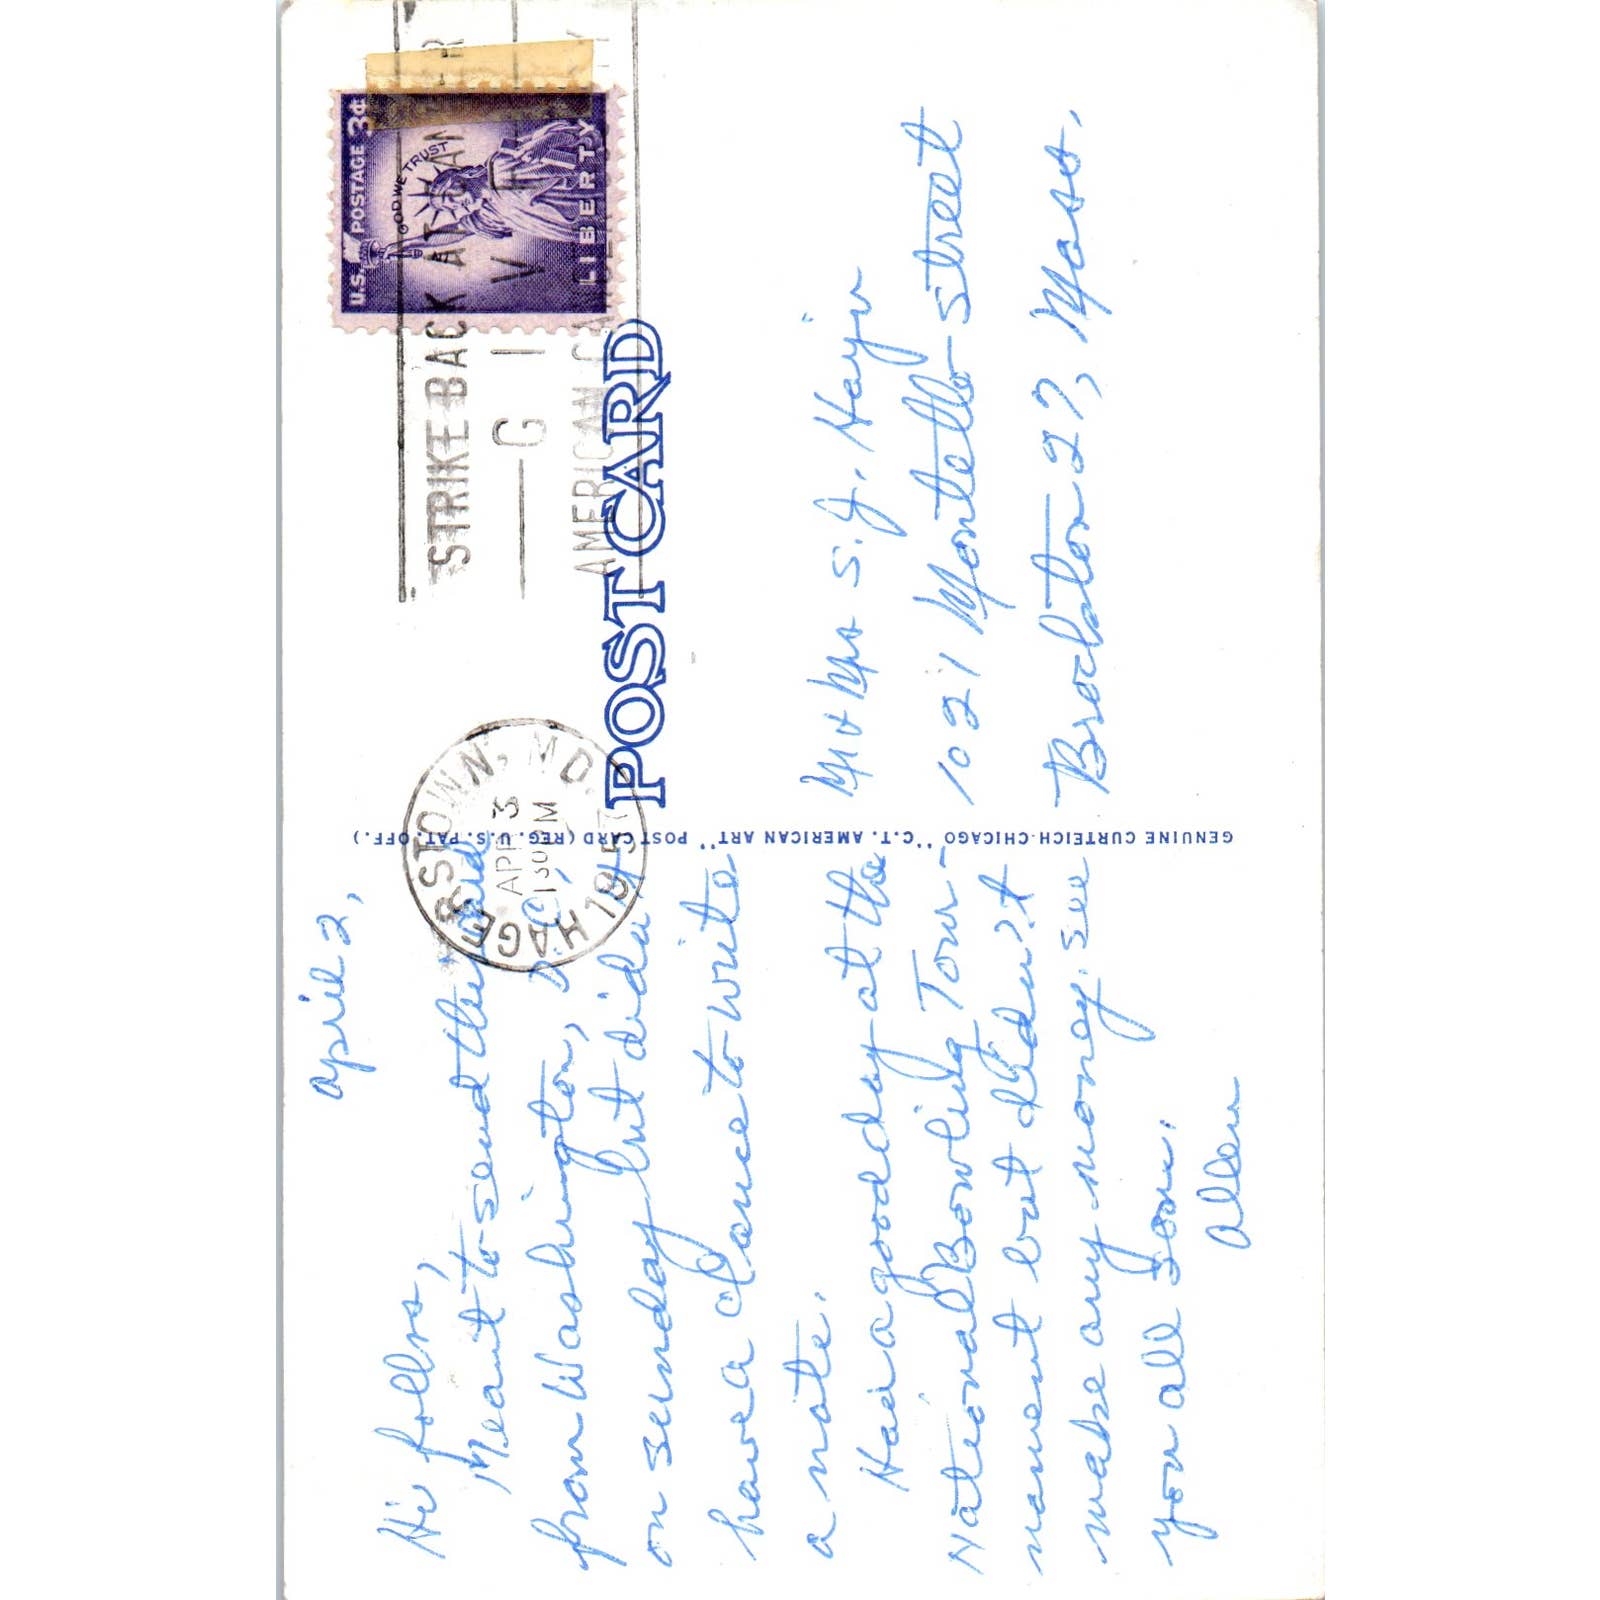 April 2,
Hi folks,
Meant to send the card
from Washington, D.C.,
on Sunday but didn't
have a chance to write
a note.
Had a good day at the
National Bowling Tour-
nament but didn't
make any money. See
you all soon.
Allen
GENUINE CURTEICH-CHICAGO "C.T. AMERICAN ART" POST CARD (REG. U.S. PAT. OFF.)
POST CARD
HAGERSTOWN, MD.
APR 3
130 PM
195
STRIKE BACK AT CANCER
GIVE
AMERICAN CANCER SOCIETY
U.S. POSTAGE 3¢
IN GOD WE TRUST
LIBERTY
Mr & Mrs S. J.
1021 Montello Street
Brockton 27, Mass.